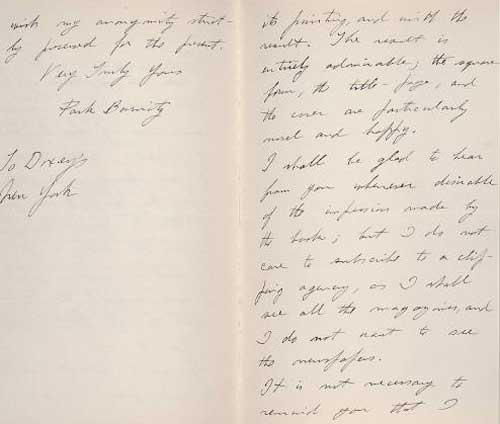 its printing, and with the
result. The result is
entirely admirable; the square
form, the title-page, and
the cover are particularly
novel and happy.
I shall be glad to hear
from you whenever desirable
of the impression made by
the book; but I do not
care to subscribe to a clip-
ping agency, as I shall
see all the magazines, and
I do not want to see
the newspapers.
It is not necessary to
remind you that I
wish my anonymity strict-
ly preserved for the present.
Very Truly Yours
Park Barnitz
To Doxey's
New York